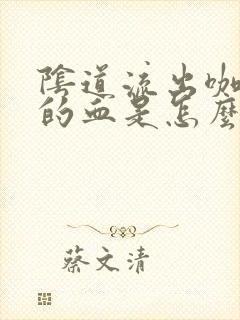 陰道流出咖
的血是怎麼
蔡文清